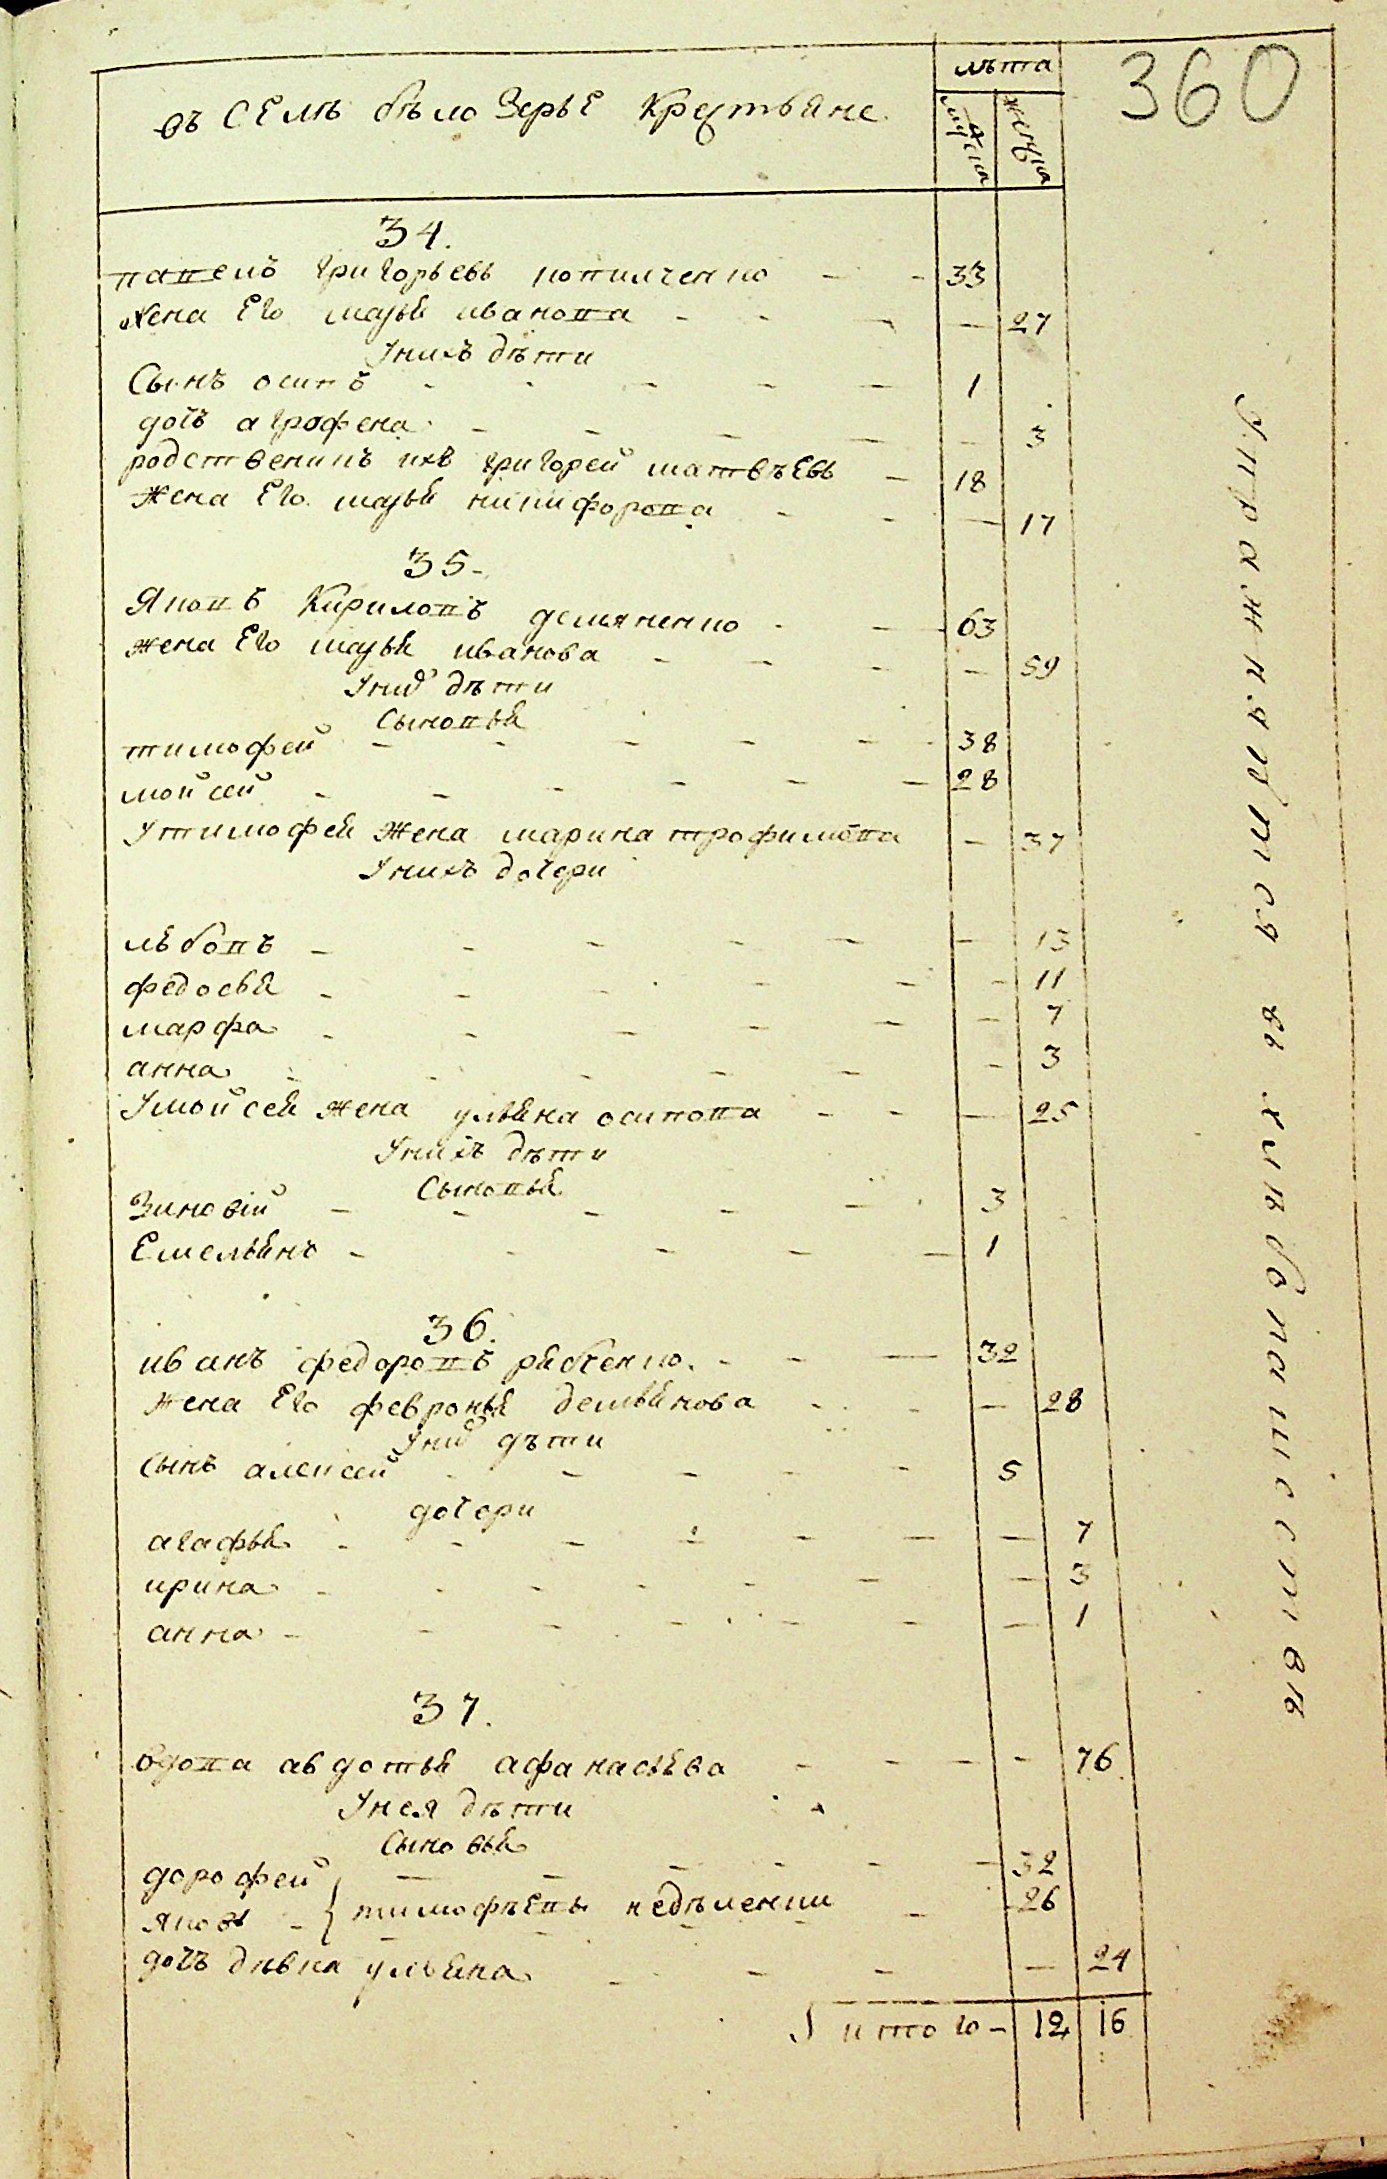 360
лѣта
въ селѣ бѣлозерье крестьяне
мужеска
женска
34.
павелъ григорьевъ 33
жена его марья иванова — 27
У нихъ дѣти
Сынъ осипъ 1
дочъ агрофена — 3
родственикъ ихъ григорей матвѣевъ 18
жена его марья никифорова — 17
35.
Яковъ Кириловъ демяненко 63
жена его марья иванова — 59
У нихъ дѣти
Сыновья
тимофей 38
мойсей 28
У тимофея жена марина трофимова — 37
У нихъ дочери
любовъ — 13
федосья — 11
марфа — 7
анна — 3
У мойсея жена ульяна осипова — 25
У нихъ дѣти
Сыновья
Зиновій 3
Емельянъ 1
36.
иванъ федоровъ рябченко 32
жена его февронья демьянова — 28
У нихъ дѣти
сынъ алексей 5
дочери
агафья — 7
ирина — 3
анна — 1
37.
вдова авдотья афанасьева — 76
У нея дѣти
Сыновья
дорофей 32
яковъ } тимофѣевы 26
дочъ дѣвка ульяна — 24
итого 12 16
Упражняится въ хлѣбопашествѣ